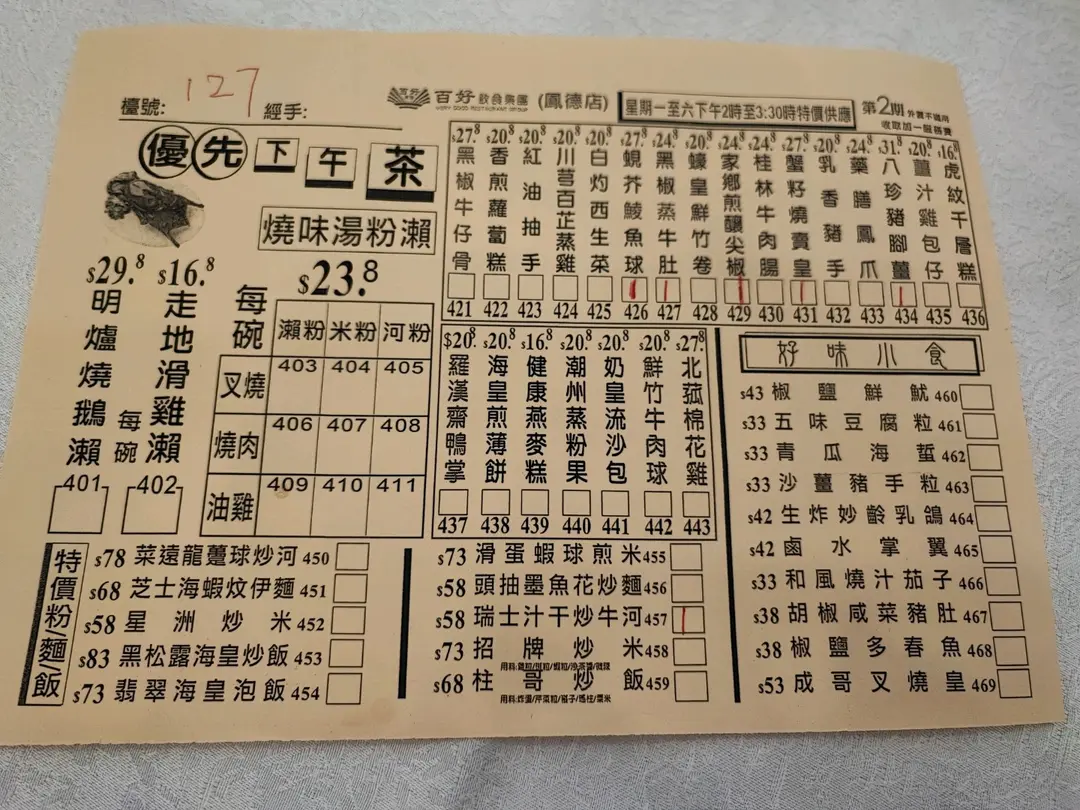 檯號: 127 經手:
百好 飲食集團 (鳳德店)
VERY GOOD RESTAURANT GROUP
星期一至六下午2時至3:30時特價供應
第2期 外賣不適用
收取加一服務費
優先下午茶
燒味湯粉瀨
$29.8 明爐燒鵝瀨 每碗 401
$16.8 走地滑雞瀨 402
每碗 $23.8
瀨粉 米粉 河粉
叉燒 403 404 405
燒肉 406 407 408
油雞 409 410 411
$27.8 黑椒牛仔骨 421
$20.8 香煎蘿蔔糕 422
$20.8 紅油抽手 423
$20.8 川芎百芷蒸雞 424
$20.8 白灼西生菜 425
$27.8 蜆芥鯪魚球 426
$24.8 黑椒蒸牛肚 427
$20.8 蠔皇鮮竹卷 428
$24.8 家鄉煎釀尖椒 429
$24.8 桂林牛肉腸 430
$27.8 蟹籽燒賣皇 431
$20.8 乳香豬手 432
$24.8 藥膳鳳爪 433
$31.8 八珍豬腳薑 434
$20.8 薑汁雞包仔 435
$16.8 虎紋千層糕 436
$20.8 羅漢齋鴨掌 437
$20.8 海皇煎薄餅 438
$16.8 健康燕麥糕 439
$20.8 潮州蒸粉果 440
$20.8 奶皇流沙包 441
$20.8 鮮竹牛肉球 442
$27.8 北菰棉花雞 443
好味小食
$43 椒鹽鮮魷 460
$33 五味豆腐粒 461
$33 青瓜海蜇 462
$33 沙薑豬手粒 463
$42 生炸妙齡乳鴿 464
$42 鹵水掌翼 465
$33 和風燒汁茄子 466
$38 胡椒咸菜豬肚 467
$38 椒鹽多春魚 468
$53 成哥叉燒皇 469
特價粉/麵/飯
$78 菜遠龍躉球炒河 450
$68 芝士海蝦炆伊麵 451
$58 星洲炒米 452
$83 黑松露海皇炒飯 453
$73 翡翠海皇泡飯 454
$73 滑蛋蝦球煎米 455
$58 頭抽墨魚花炒麵 456
$58 瑞士汁干炒牛河 457
$73 招牌炒米 458
$68 柱哥炒飯 459